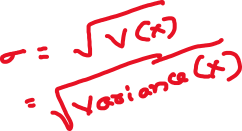 σ = √V(X)
= √Variance(X)